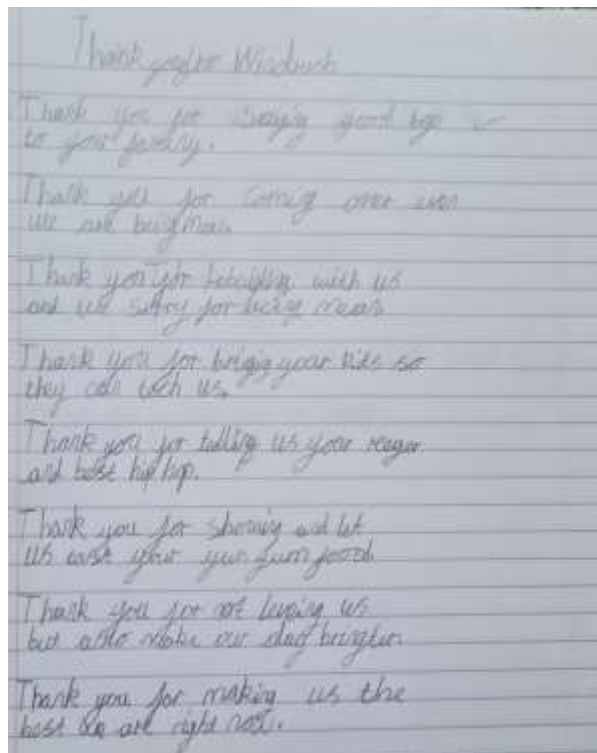 Thank you for Windrush
Thank you for saying good bye
to your family.
Thank you for coming over even
we are being mean.
Thank you for with us
and we sorry for being mean
Thank you for brigig your kids so
they can tech us.
Thank you for telling us your reager
and best hip hop.
Thank you for showing and let
us tast your yum yum food
Thank you for not leving us
but make our day bringter.
Thank you for making us the
best we are right now.